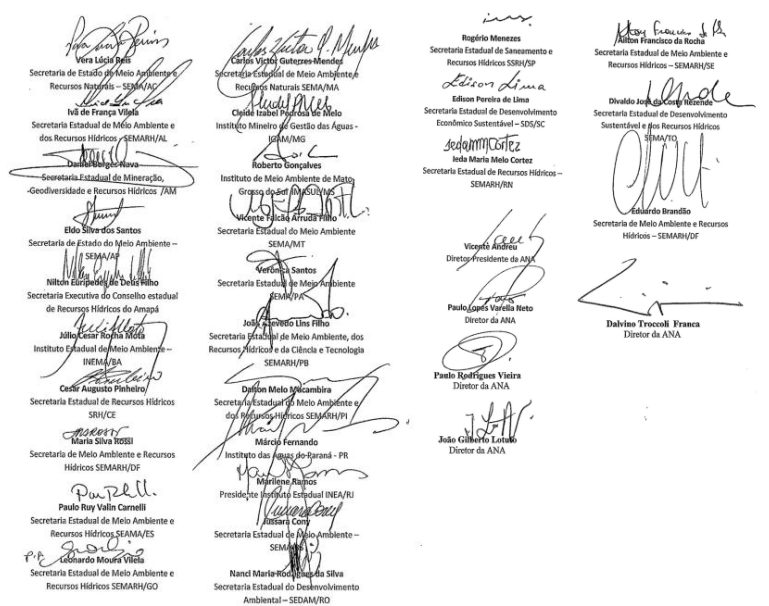 Vera Lúcia Reis
Secretaria de Estado do Meio Ambiente e
Recursos Naturais – SEMA/AC
Ivã de França Vilela
Secretaria Estadual do Meio Ambiente e
dos Recursos Hídricos - SEMARH/AL
Daniel Borges Nava
Secretaria Estadual de Mineração,
Geodiversidade e Recursos Hídricos /AM
Eldo Silva dos Santos
Secretaria de Estado do Meio Ambiente –
SEMA/AP
Nilton Eurípedes de Deus Filho
Secretaria Executiva do Conselho estadual
de Recursos Hídricos do Amapá
Júlio Cesar Rocha Mota
Instituto Estadual de Meio Ambiente –
INEMA/BA
Cesar Augusto Pinheiro
Secretaria Estadual de Recursos Hídricos
SRH/CE
Maria Silva Rossi
Secretaria de Meio Ambiente e Recursos
Hídricos SEMARH/DF
Paulo Ruy Valin Carnelli
Secretaria Estadual de Meio Ambiente e
Recursos Hídricos SEAMA/ES
P.P.
Leonardo Moura Vilela
Secretaria Estadual de Meio Ambiente e
Recursos Hídricos SEMARH/GO
Carlos Victor Guterres Mendes
Secretaria Estadual de Meio Ambiente e
Recursos Naturais SEMA/MA
Cleide Izabel Pedrosa de Melo
Instituto Mineiro de Gestão das Águas -
IGAM/MG
Roberto Gonçalves
Instituto de Meio Ambiente de Mato
Grosso do Sul IMASUL/MS
Vicente Falcão Arruda Filho
Secretaria Estadual do Meio Ambiente
SEMA/MT
Verônica Santos
Secretaria Estadual de Meio Ambiente
SEMA/PA
João Azevedo Lins Filho
Secretaria Estadual de Meio Ambiente, dos
Recursos Hídricos e da Ciência e Tecnologia
SEMARH/PB
Dalton Melo Macambira
Secretaria Estadual do Meio Ambiente e
dos Recursos Hídricos SEMARH/PI
Márcio Fernando
Instituto das Águas do Paraná - PR
Marilene Ramos
Presidente Instituto Estadual INEA/RJ
Jussara Cony
Secretaria Estadual de Meio Ambiente –
Nanci Maria Rodrigues da Silva
Secretaria Estadual do Desenvolvimento
Ambiental – SEDAM/RO
Rogério Menezes
Secretaria Estadual de Saneamento e
Recursos Hídricos SSRH/SP
Edison Lima
Edison Pereira de Lima
Secretaria Estadual de Desenvolvimento
Econômico Sustentável – SDS/SC
Iedammcortez
Ieda Maria Melo Cortez
Secretaria Estadual de Recursos Hídricos –
SEMARH/RN
Vicente Andreu
Diretor-Presidente da ANA
Paulo Lopes Varella Neto
Diretor da ANA
Paulo Rodrigues Vieira
Diretor da ANA
João Gilberto Lotufo
Diretor da ANA
Ailton Francisco da Rocha
Secretaria Estadual de Meio Ambiente e
Recursos Hídricos – SEMARH/SE
Divaldo José da Costa Rezende
Secretaria Estadual de Desenvolvimento
Sustentável e dos Recursos Hídricos
SEMA/TO
Eduardo Brandão
Secretaria de Meio Ambiente e Recursos
Hídricos – SEMARH/DF
Dalvino Troccoli Franca
Diretor da ANA